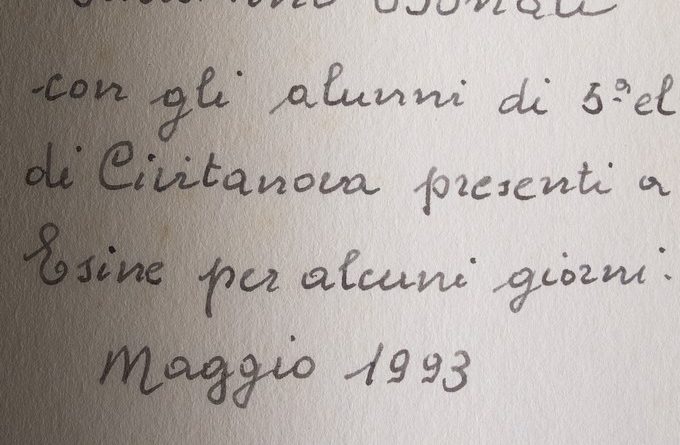 con gli alunni di 5ª el
di Civitanova presenti a
Esine per alcuni giorni.
Maggio 1993